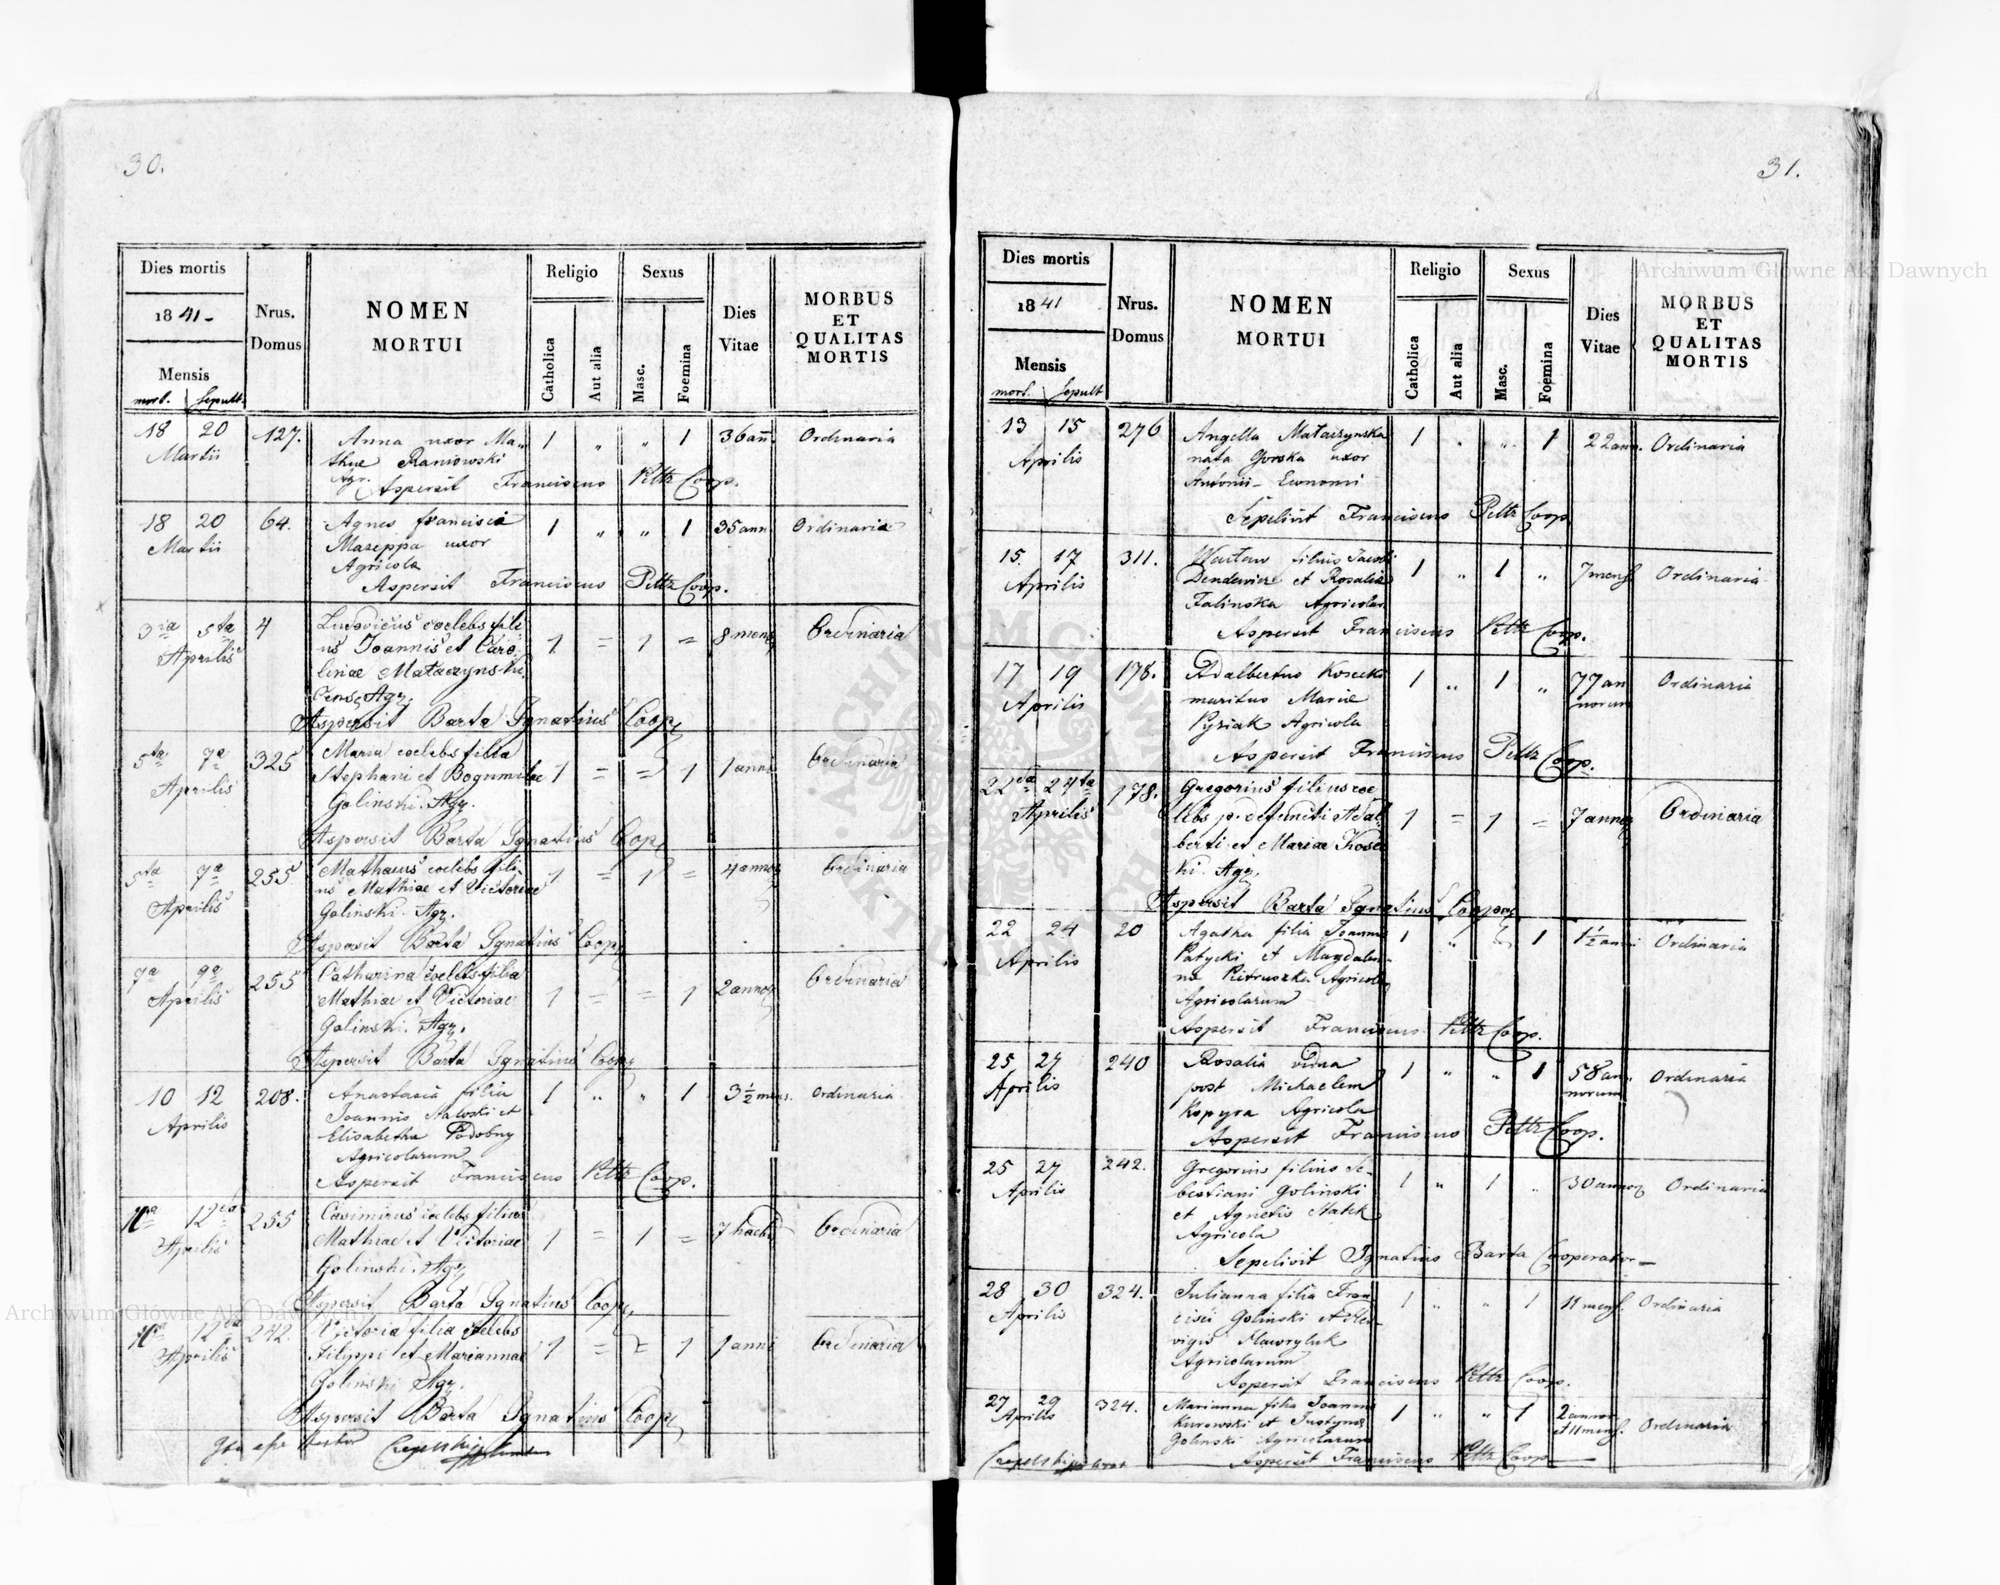 30.
Dies mortis
1841-
Mensis
mort. Sepult.
Nrus. Domus
NOMEN
MORTUI
Religio
Catholica
Aut alia
Sexus
Masc.
Foemina
Dies
Vitae
MORBUS
ET
QUALITAS
MORTIS
18 20 127. Anna uxor Ma- 1 " " 1 36 ann. Ordinaria
Martii thae Raniowski
Agr. Aspersit Franciscus Pettz Coop.
18 20 64. Agnes francisci 1 " " 1 35 ann Ordinaria
Martii Mazeppa uxor
Agricola
Aspersit Franciscus Pettz Coop.
3ia 5ta 4 Ludovicus coelebs fili
Aprilis us Joannis et Caro- 1 = 1 = 8 mens Ordinaria
linae Mataczynski
Agr.
Aspersit Barta Ignatius Coop
5ta 7a 325 Maria coelebs filia
Aprilis Stephani et Bogumilae 1 = = 1 1 anni Ordinaria
Golinski. Agr.
Aspersit Barta Ignatius Coop
5ta 7a 255 Mathaeus coelebs fili-
Aprilis us Mathiae et Victoriae 1 = 1 = 4 annor Ordinaria
Golinski. Agr.
Aspersit Barta Ignatius Coop
7a 9a 255 Catharina coelebs filia
Aprilis Mathiae et Victoriae 1 = = 1 2 annor Ordinaria
Golinski. Agr.
Aspersit Barta Ignatius Coop
10 12 208. Anastasia filia 1 " " 1 3 1/2 mens. Ordinaria
Aprilis Joannis et
Elisabetha Podobny
Agricolarum
Aspersit Franciscus Pettz Coop.
12ca 255 Casimirus coelebs filius
Aprilis Mathiae et Victoriae 1 = 1 = 7 Ordinaria
Golinski. Agr
Aspersit Barta Ignatius Coop
12ca 242. Victoria filia coelebs
Aprilis Filippi et Mariannae 1 = = 1 1 anni Ordinaria
Golinski Agr.
Aspersit Barta Ignatius Coop
31.
Dies mortis
1841
Mensis
mort. Sepult
Nrus.
Domus
NOMEN
MORTUI
Religio
Catholica
Aut alia
Sexus
Masc.
Foemina
Dies
Vitae
MORBUS
ET
QUALITAS
MORTIS
13 15 276 Angella Mataczynska 1 " " 1 22 ann. Ordinaria
Aprilis nata Gorska uxor
Antonii - Economi
Sepelivit Franciscus Pettz Coop
15 17 311. filius Jacobi
Aprilis et Rosalia 1 " 1 " 7 mens Ordinaria
Falinska Agricolar.
Aspersit Franciscus Pettz Coop.
17 19 178. Adalbertus Kosecki 1 " 1 " 77 an Ordinaria
Aprilis maritus Mariae norum
Pyziak Agricola
Aspersit Franciscus Pettz Coop.
22da 24ta 178. Gregorius filius coe
Aprilis lebs p. defuncti Adal- 1 = 1 = 7 annor Ordinaria
berti et Mariae Kosec
ki. Agr.
Aspersit Barta Ignatius Cooper
22 24 20 Agatha filia Joannis 1 " " 1 1 1/2 anni Ordinaria
Aprilis Patycki et Magdale-
na Pietruszka Agricola
Agricolarum
Aspersit Franciscus Pettz Coop.
25 27 240 Rosalia vidua 1 " " 1 58 an- Ordinaria
Aprilis post Michaelem norum
Kopyra Agricola
Aspersit Franciscus Pettz Coop.
25 27 242. Gregorius filius Se- 1 " 1 " 30 annor Ordinaria
Aprilis bastiani Golinski
et Agnetis Statek
Agricola
Sepelivit Ignatius Barta Cooperator
28 30 324. Julianna filia Fran 1 " " 1 11 mens. Ordinaria
Aprilis cisci Golinski et Hed-
vigis Hawryluk
Agricolarum
Aspersit Franciscus Pettz Coop.
27 29 324. Marianna filia Joannis 1 " " 1 2 annor Ordinaria
Aprilis Kurowski et Justyna et 11 mens.
Golinski Agricolarum
Aspersit Franciscus Pettz Coop
Archiwum Główne Akt Dawnych
Archiwum Główne Akt Dawnych
ARCHIWUM GŁÓWNE AKT DAWNYCH